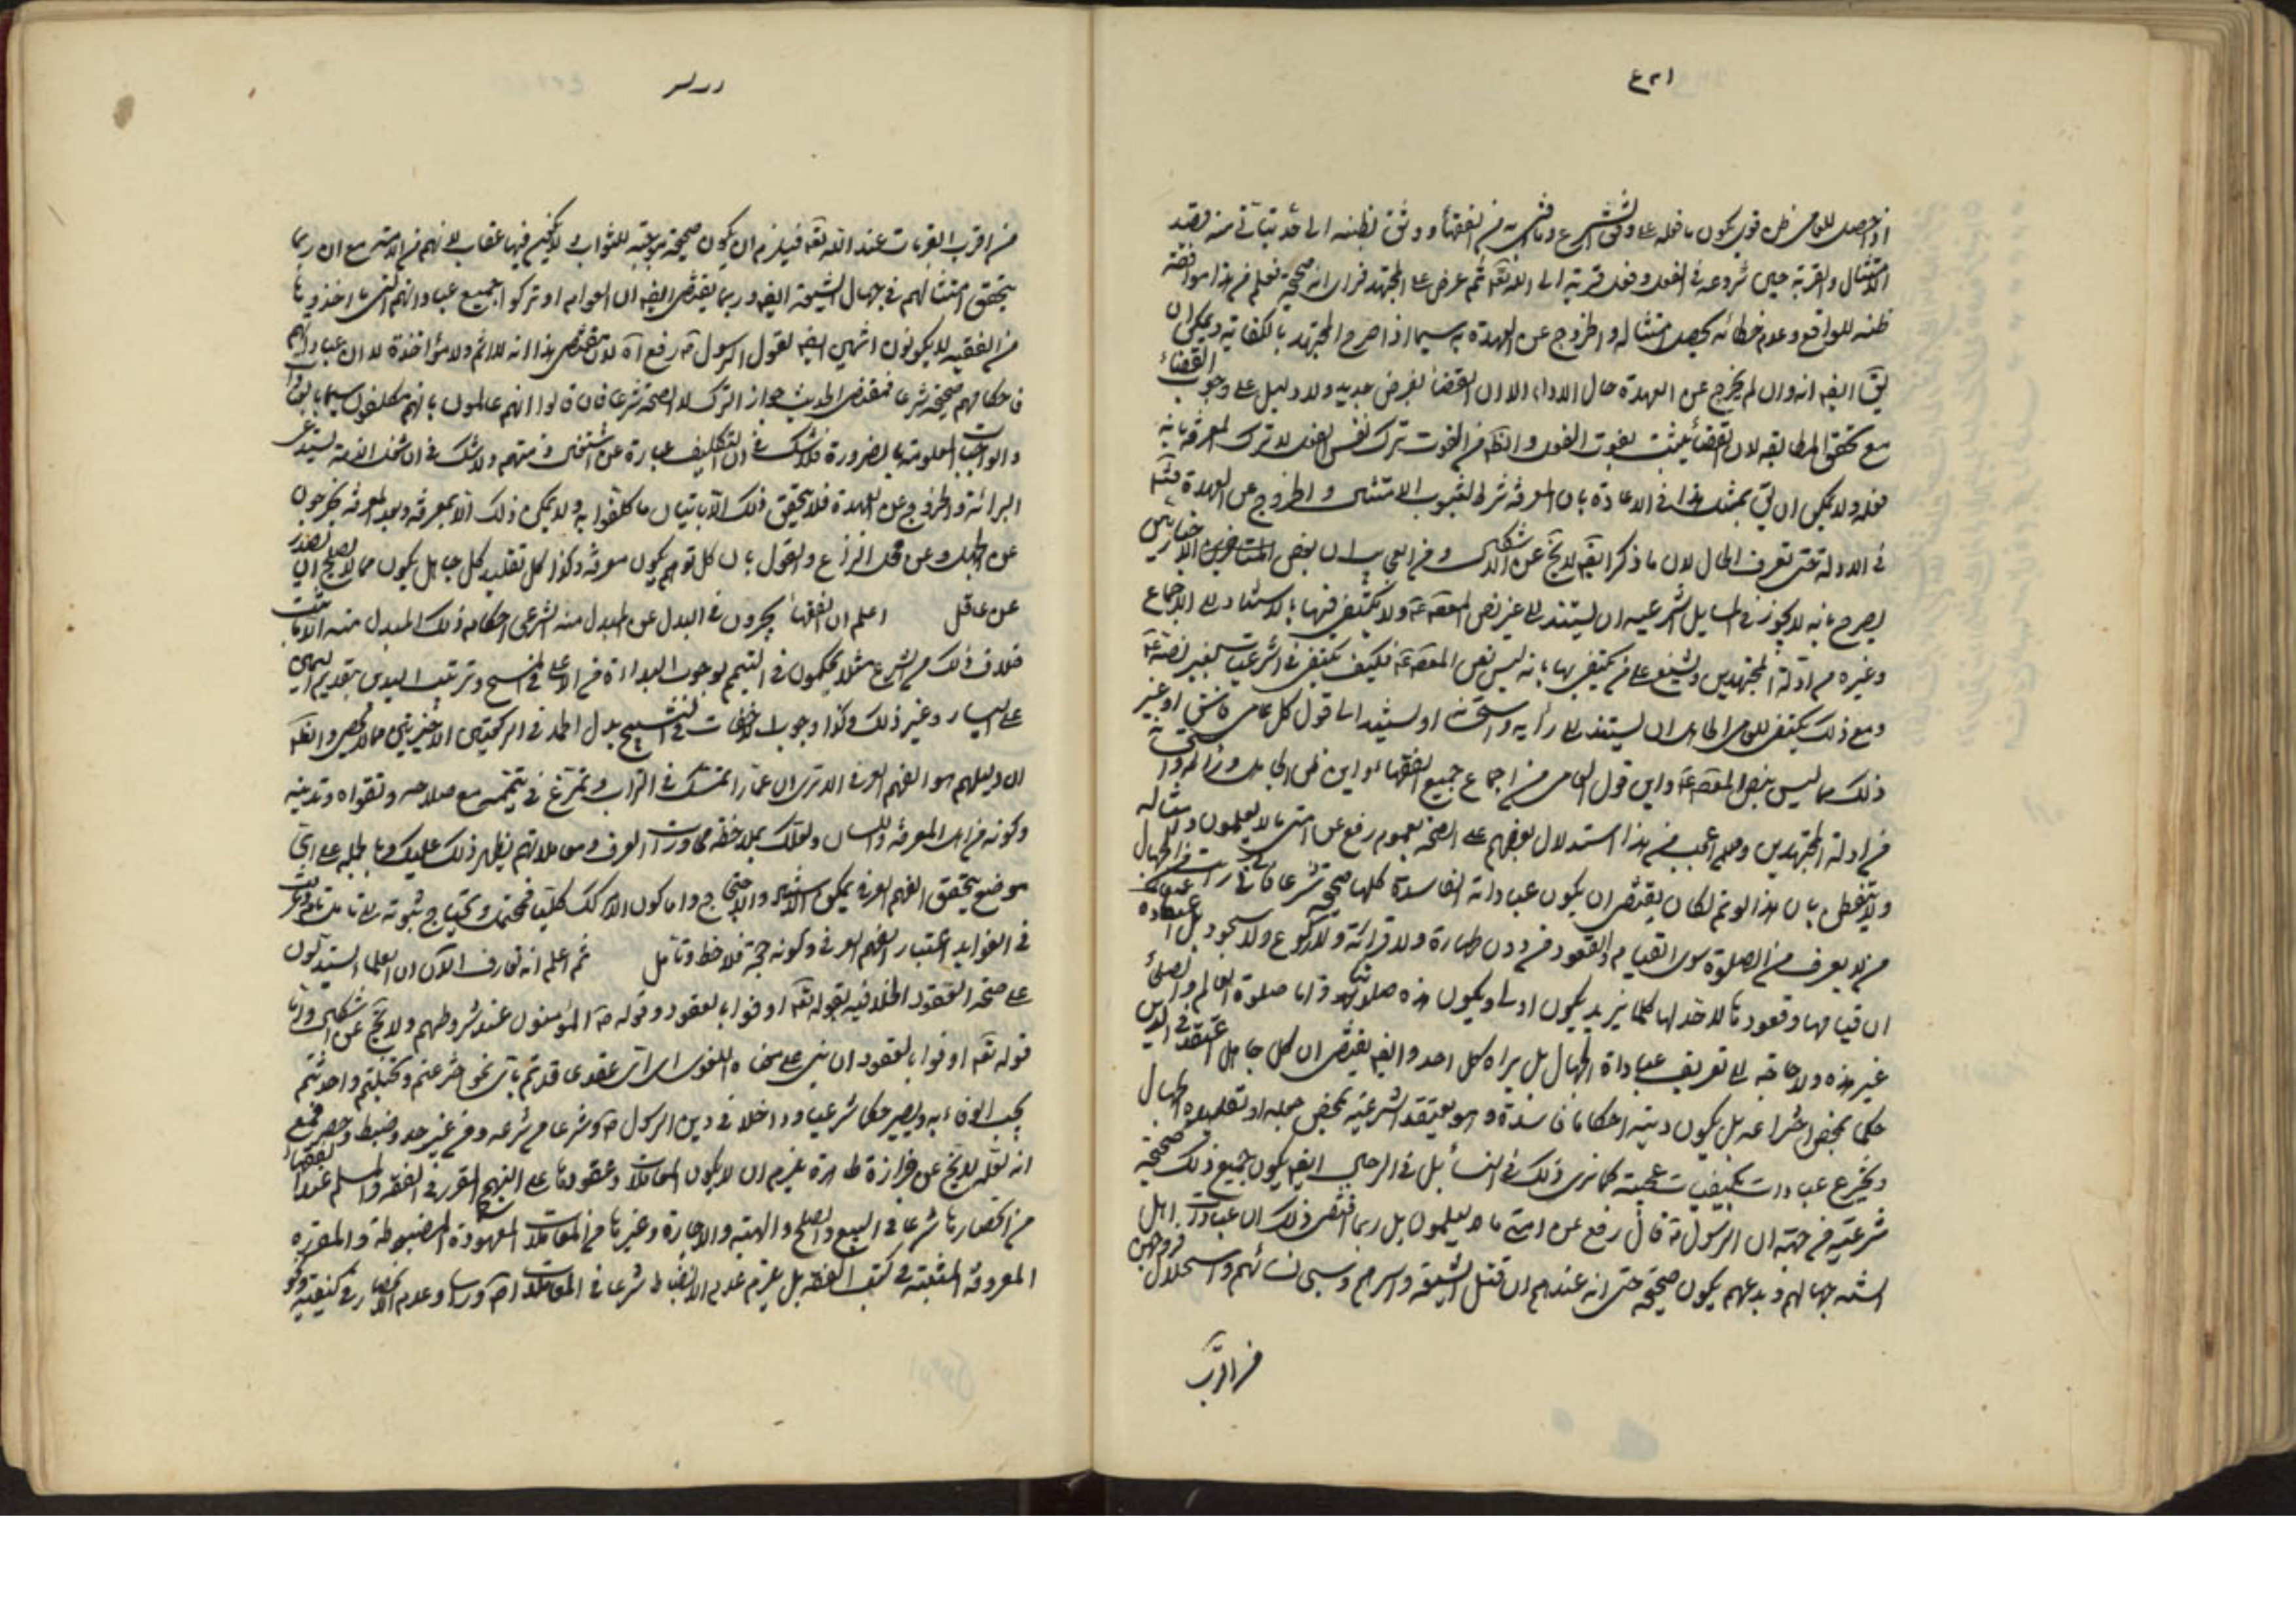 اذا حصل للعامي ظن قوي بكون ما فعله على وفق الشرع وما قرب من الفقهاء ووثق بظنه الى حد يتأتى منه قصد
الامتثال والقربة حين شروعه في الفعل وفعل قربة الى الله تعه ثم عرض على المجتهد فرأى انه صحيح فعلم من هذا موافقة
ظنه للواقع وعدم خطائه يحصل امتثاله والخروج عن العهدة به سيما اذا صرح المجتهد بالكفاية ويمكن ان
يق ايضه انه وان لم يخرج عن العهدة حال الاداء الا ان القضاء بفرض جديد ولا دليل على وجوب القضاء
مع تحقق المطابقه لان القضاء يثبت بفوت الفعل والظه من الفوت ترك نفس الفعل لا ترك المعرفة بانه
فعله ولا يمكن ان يق بمثل هذا في الاعادة بان المعرفة شرط لثبوب الامتثال والخروج عن العهدة فتتم
في الادلة حتى تعرف الحال لان ما ذكر ايضه لا يخ عن الاشكال ومن العجب ان بعض المتاخرين الاخباريين
يصرح بانه لا يجوز في المسايل الشرعيه ان يستند الى غير نص المعصوم ولا يكتفى فيها بالاستناد الى الاجماع
وغيره من ادلة المجتهدين ويشنع على من يكتفي بها بانه ليس نص المعصوم فكيف يكتفى في الشرعيات بغير نصه
ومع ذلك يكتفى للعامي الجاهل ان يستند الى رأيه واستحسانه او يستند الى قول كل عامي فاسق او غير
ذلك مما ليس بنص المعصوم واين قول العامي من اجماع جميع الفقهاء واين ظن الجاهل
من ادلة المجتهدين وعلم اعجب من هذا استدلال بعضهم على الصحة بعموم رفع عن امتي ما لا يعلمون وامثاله
ولا يتفطن بان هذا لو تم لكان يقتضي ان يكون عباداته الفاسدة كلها صحيحة شرعا من الجهال
من لا يعرف من الصلوة سوى القيام والقعود من دون طهارة ولا قرائة ولا ركوع ولا سجود بل
ان قيامها وقعودها لا حد لها كلما يزيد يكون اولى ويكون هذه صلوة واما صلوة العالم والصلحاء
غير هذه ولا حاجة الى تعريف عبادات الجهال بل يراه كل احد وايضه يقتضي ان كل جاهل اعتقد في الدين
حكما بمحض اختراعه بل يكون دينه احكاما فاسدة وهو يعتقد الشرعية بمحض جهله او تقليده الجهال
ويخترع عبادات بكيفيات عجيبة كما نرى ذلك في النساء بل في الرجال ايضه يكون جميع ذلك صحيحة
شرعية من جهة ان الرسول ص قال رفع عن امتي ما لا يعلمون بل ربما اقتضى ذلك ان عبادات اهل
السنه جهالهم وبدعهم يكون صحيحة حتى انه عندهم ان قتل الشيعة واسرهم وسبي نسائهم واستحلال فروجهن
من اقرب
من اقرب القربات عند الله تعه فيلزم ان يكون صحيحة موجبة للثواب ولا يكون فيها عقاب لانهم من الامة مع ان ربما
يتحقق امثالهم في جهال الشيعة ايضه وربما يقتضى ايضه ان العوام لو تركوا جميع عباداتهم التي ما اخذوها
من الفقيه لا يكونون اثمين ايضه لقول الرسول ص رفع اه لان مقتضى هذا انه لا اثم ولا مؤاخذة لا ان عباداتهم
واحكامهم صحيحة شرعا فمقتضى الحديث جواز الترك لا الصحة شرعا فان قالوا انهم عالمون بانهم مكلفون سيما
والواجبات المعلومة بالضرورة فلا شك في ان التكليف عبارة عن اشتغال ذمتهم ولا شك في ان شغل الذمة يستدعى
البرائة والخروج عن العهدة فلا يتحقق ذلك الا باتيان ما كلفوا به ولا يمكن ذلك الا بمعرفة وبعد المعرفة يخرجون
عن الجهل وعن محل النزاع والقول بان كل توهم يكون معرفة وكذا كل تقليد كل جاهل يكون مما لا يصلح ان يصدر
عن عاقل    اعلم ان الفقهاء يجرون في البدل عن المبدل منه الشرعي احكام ذلك المبدل منه الا ما ثبت
خلاف ذلك من الشرع مثلا يحكمون في التيمم بوجوب البدائة من الاعلى في المسح وترتيب اليدين بتقديم اليمين
على اليسار وغير ذلك وكذا وجوب الاخفات في التسبيح بدل الحمد في الركعتين الاخيرتين مما لا يحصى والظه
ان دليلهم هو الفهم العرفي الا ترى ان عمارا تمعك في التراب وتمرغ في تيممه مع صلاحه وتقواه وتدينه
وكونه من اهل المعرفة واللسان ولعلك بملاحظة محاورات العرف ومعاملاتهم يظهر ذلك عليك وبالجملة على اي
موضع يتحقق الفهم العرفي يمكن الاستدلال والاحتجاج واما كون الامر كك كليا فمحتمل ويحتاج ثبوته الى تامل تام وعرفت
في الفوايد اعتبار الفهم العرفي وكونه حجة فلاحظ وتامل    ثم اعلم انه تعارف الان ان العلماء يستدلون
على صحة العقود الخلافيه بقوله تعه اوفوا بالعقود وقوله ص المؤمنون عند شروطهم ولا يخ عن اشكال واما
قوله تعه اوفوا بالعقود ان بني على معناه اللغوى اى اى عقد عاقدتم باى نحو اخترعتم وتخيلتم واحدثتم
يجب الوفاء به ويصير حكما شرعيا وداخلا في دين الرسول ص وشرعا من شرعه ومن غير حد وضبط وحصر فمع
انه لعله لا يخ عن حزازة ظاهرة يلزم ان لا يكون المعاملات وعقودها على النهج المقرر في الفقه والمسلم عند الفقهاء
من انحصارها شرعا في البيع والصلح والهبة والاجارة وغيرها من المعاملات المعهودة المضبوطة والمقررة
المعروفة المثبتة في كتب الفقه بل يلزم عدم الانضباط شرعا في المعاملات وعدم انحصار في كيفية ونحو